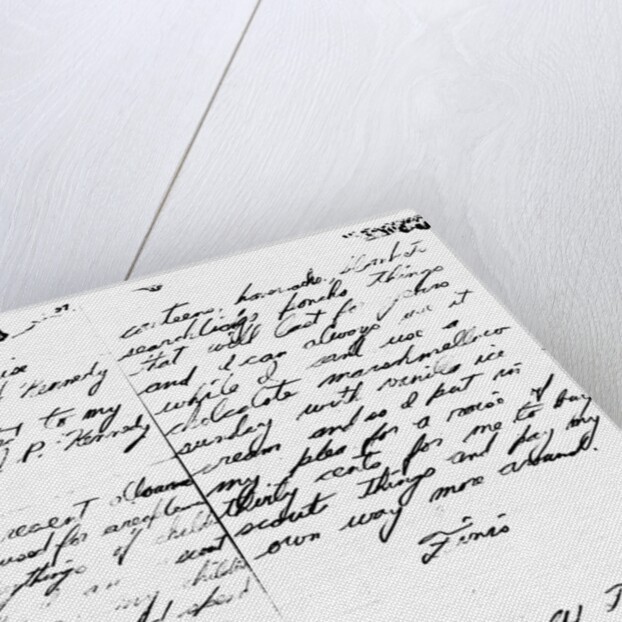 Kennedy
to my
J. P. Kennedy
recent allowance
used for areoplane
things of childh
scout
my childis
spend
canteens, haversacks, blankets
searchlights poncho things
that will last for years
and I can always use it
while I cant use a
chocolate marshmellow
sunday with vanilla ice
cream and so I put in
my plea for a raise of
thirty cents for me to buy
scout things and pay my
own way more around.
Finis